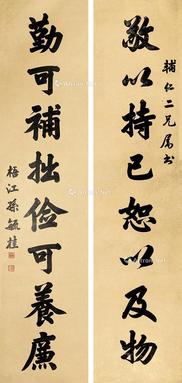 輔仁二兄属书
敬以持己恕以及物
勤可補拙儉可養廉
梧江孫毓桂